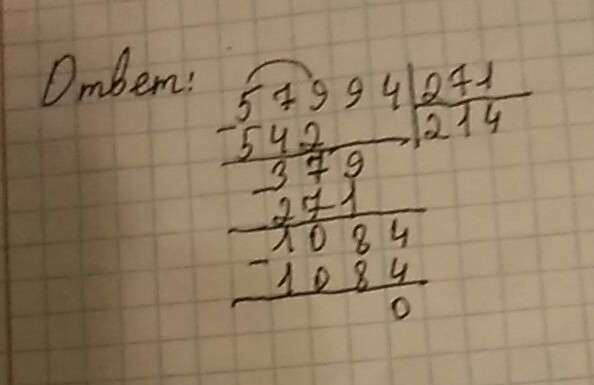 Ответ: 57994 271
- 542 214
379
- 271
1084
- 1084
0